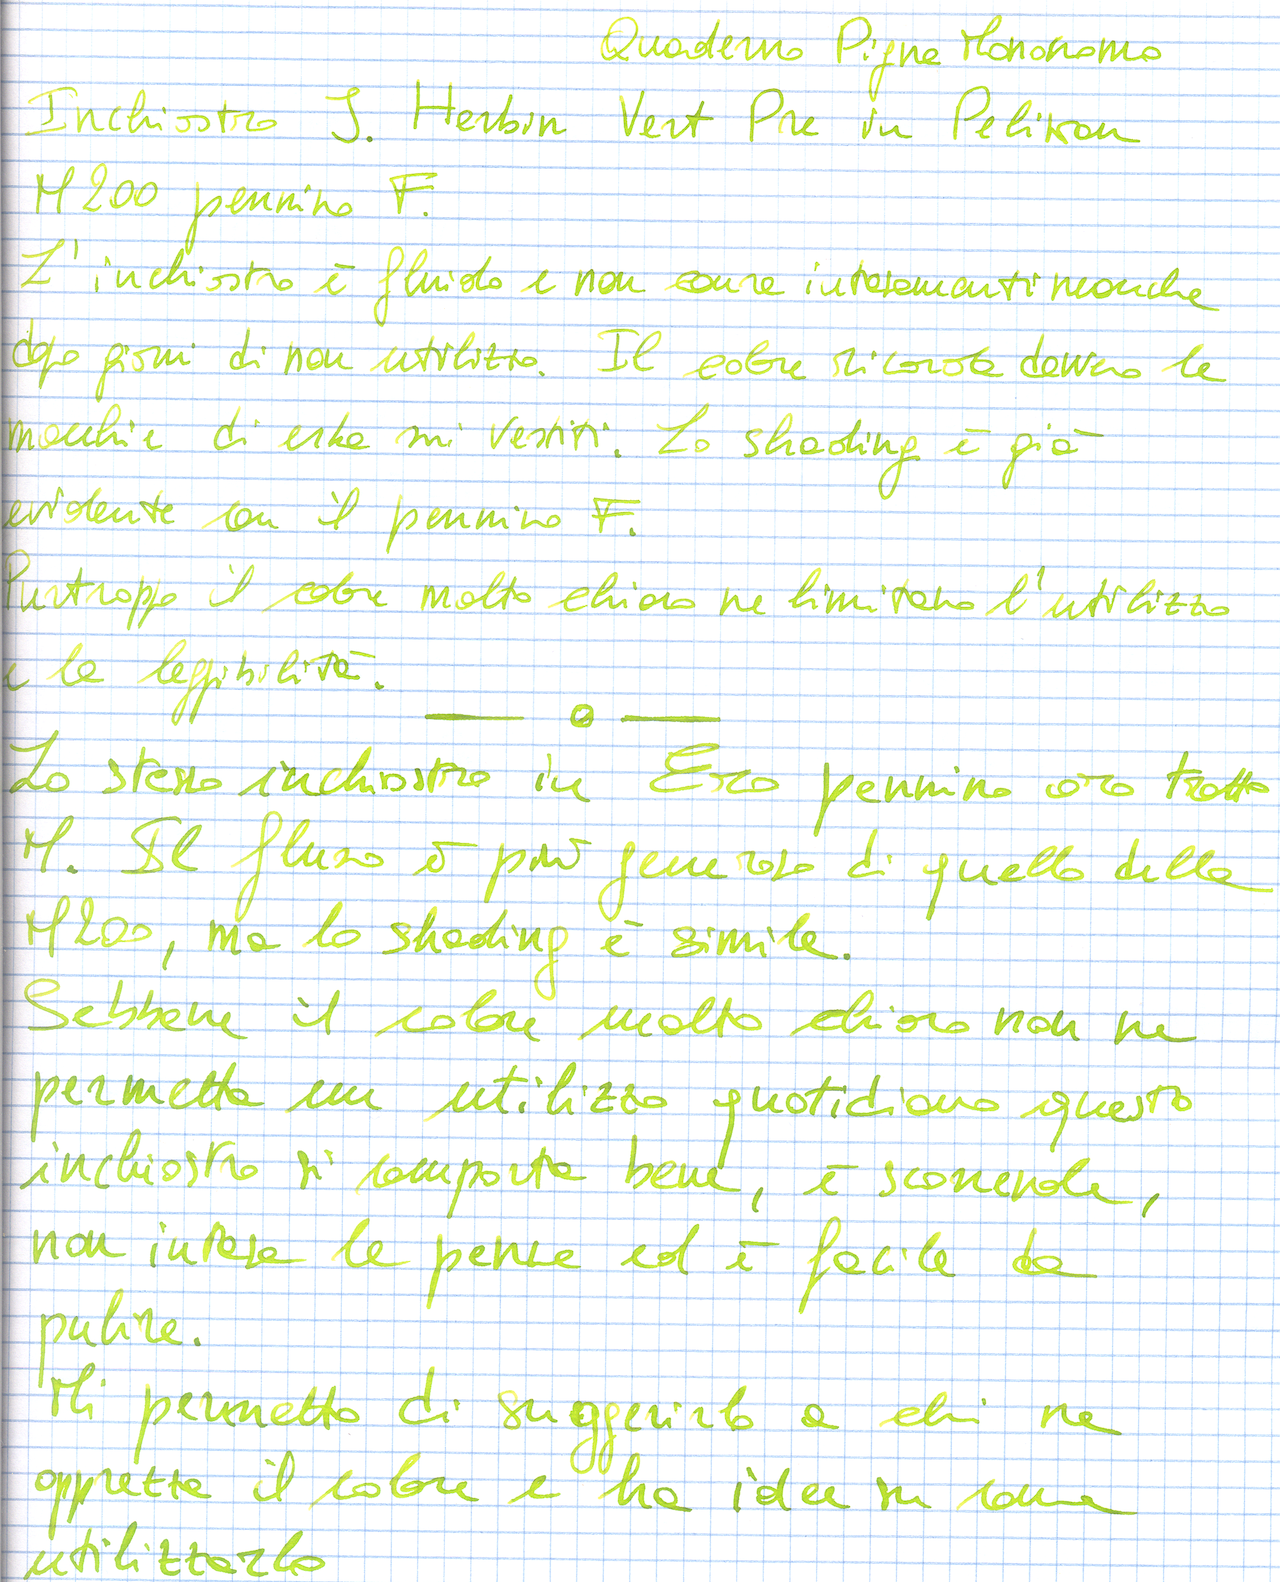 Quaderno Pigna Monocromo
Inchiostro J. Herbin Vert Pre in Pelikan
M200 pennino F.
L'inchiostro è fluido e non causa intasamenti neanche
dopo giorni di non utilizzo. Il colore ricorda davvero le
macchie di erba sui vestiti. Lo shading è già
evidente con il pennino F.
Purtroppo il colore molto chiaro ne limitano l'utilizzo
e la leggibilità.
Lo stesso inchiostro in pennino oro tratto
M. Il flusso è più generoso di quello della
M200, ma lo shading è simile.
Sebbene il colore molto chiaro non ne
permetta un utilizzo quotidiano questo
inchiostro si comporta bene, è scorrevole,
non intasa le penne ed è facile da
pulire.
Mi permetto di suggerirlo a chi ne
apprezza il colore e ha idee su come
utilizzarlo